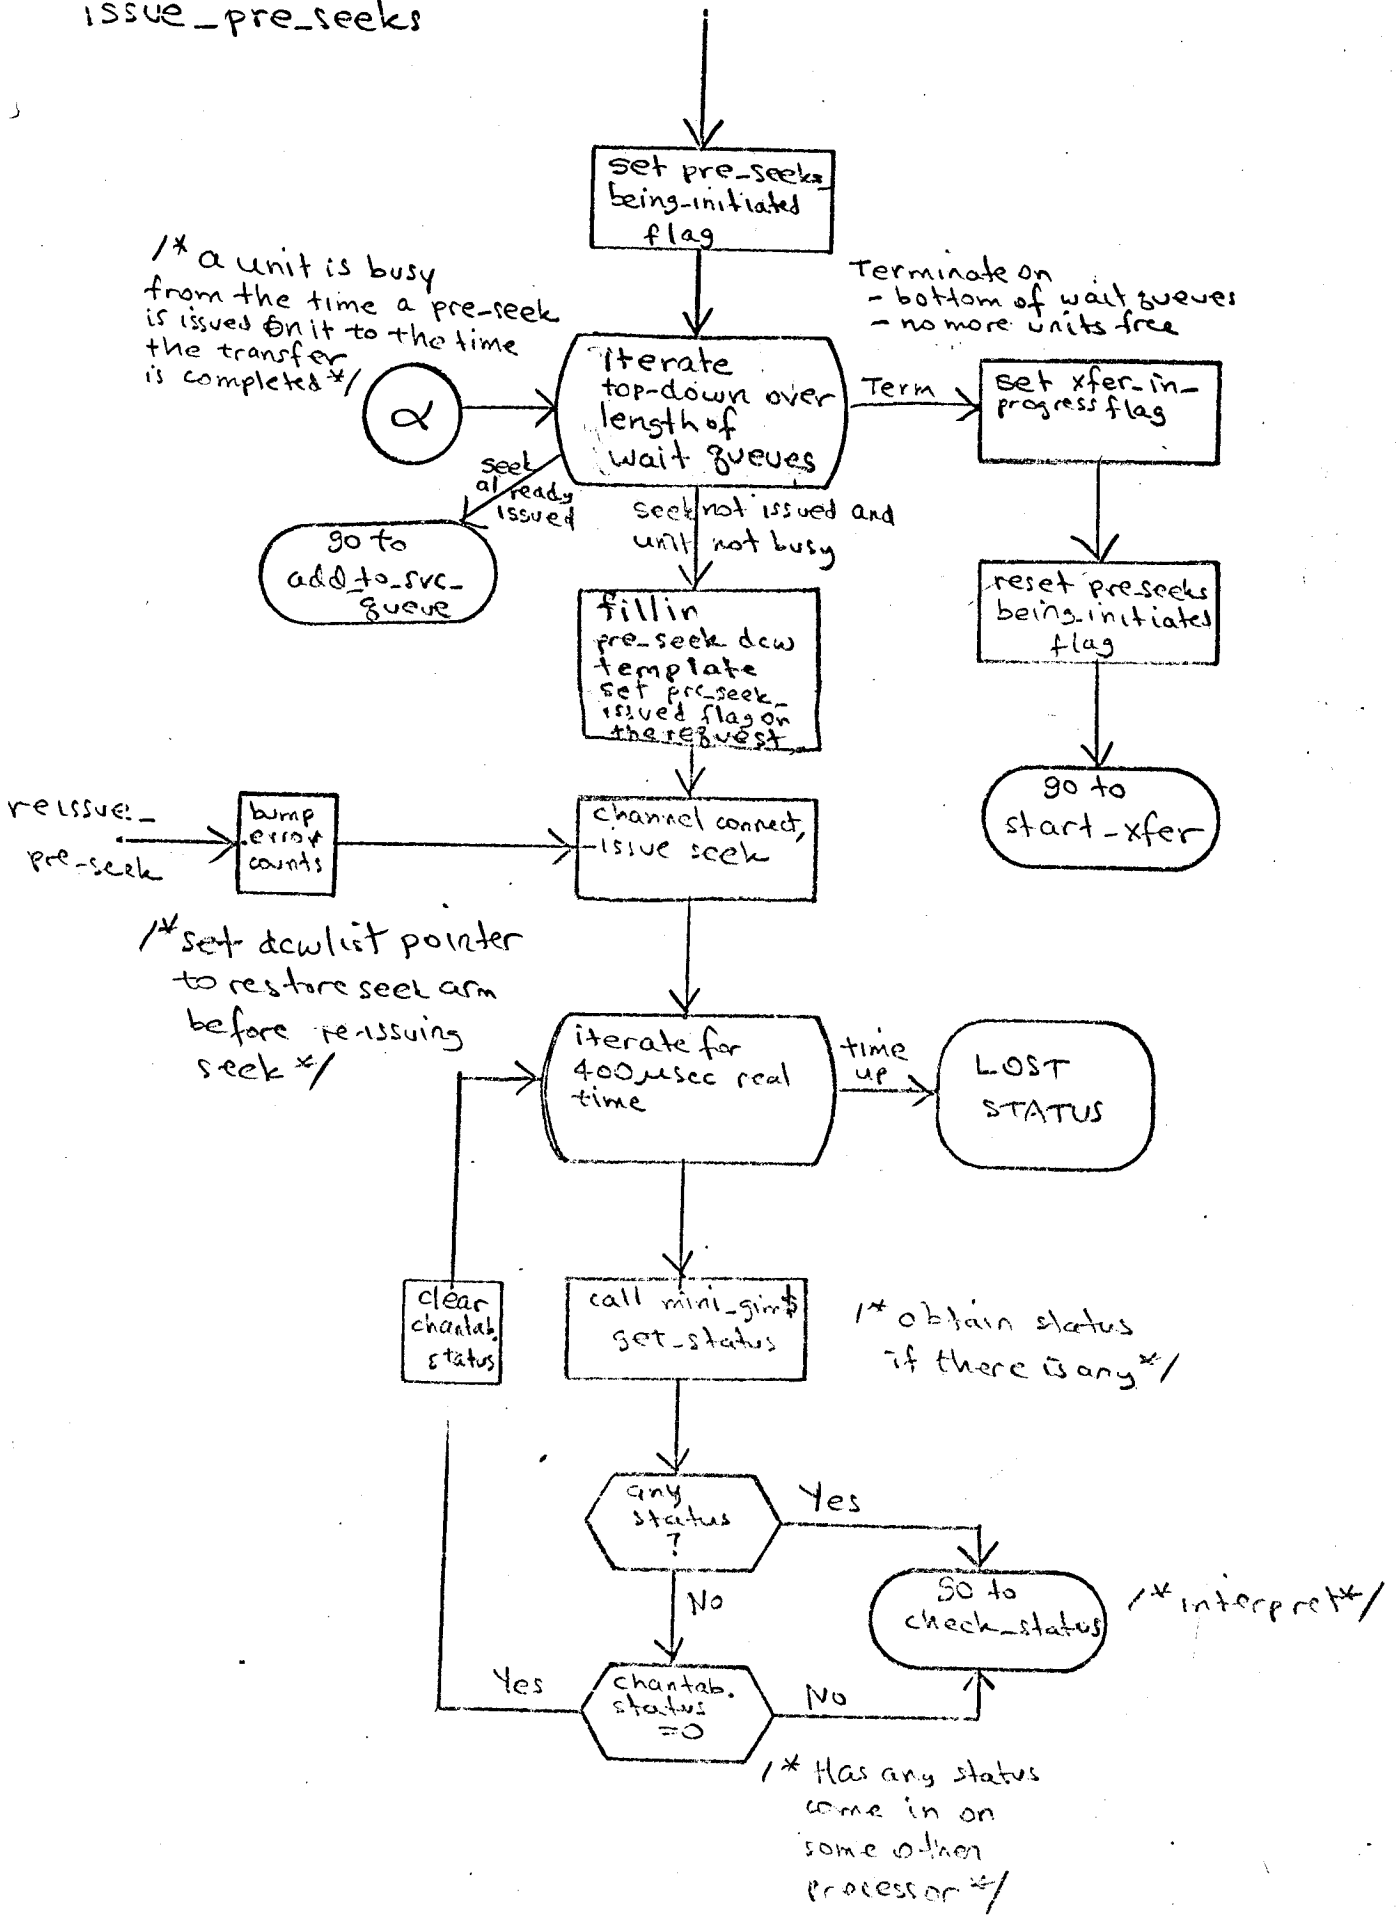 issue_pre_seeks
set pre_seeks_
being_initiated
flag
/* a unit is busy
from the time a pre-seek
is issued on it to the time
the transfer
is completed */
Terminate on
- bottom of wait queues
- no more units free
iterate
top-down over
length of
wait queues
α
Term
set xfer_in_
progress flag
seek
already
issued
go to
add_to_svc_
queue
seek not issued and
unit not busy
reset pre_seeks
being_initiated
flag
fill in
pre_seek dcw
template
set pre_seek_
issued flag on
the request
go to
start_xfer
reissue_
pre-seek
bump
error
counts
channel connect,
issue seek
/* set dcwlist pointer
to restore seek arm
before re-issuing
seek */
iterate for
400 μsec real
time
time
up
LOST
STATUS
clear
chantab.
status
call mini_gim$
get_status
/* obtain status
if there is any */
any
status
?
Yes
No
go to
check_status
/* interpret */
Yes
chantab.
status
=0
No
/* Has any status
come in on
some other
processor */